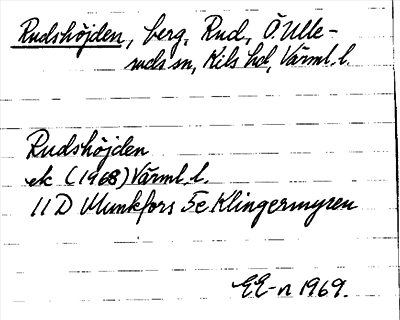 Rudshöjden, berg, Rud, Ö. Ulle-
ruds sn, Kils hd, Värml. l.
Rudshöjden
ek (1968) Värml. l.
11 D Munkfors 5e Klingermyren
EE-n 1969.